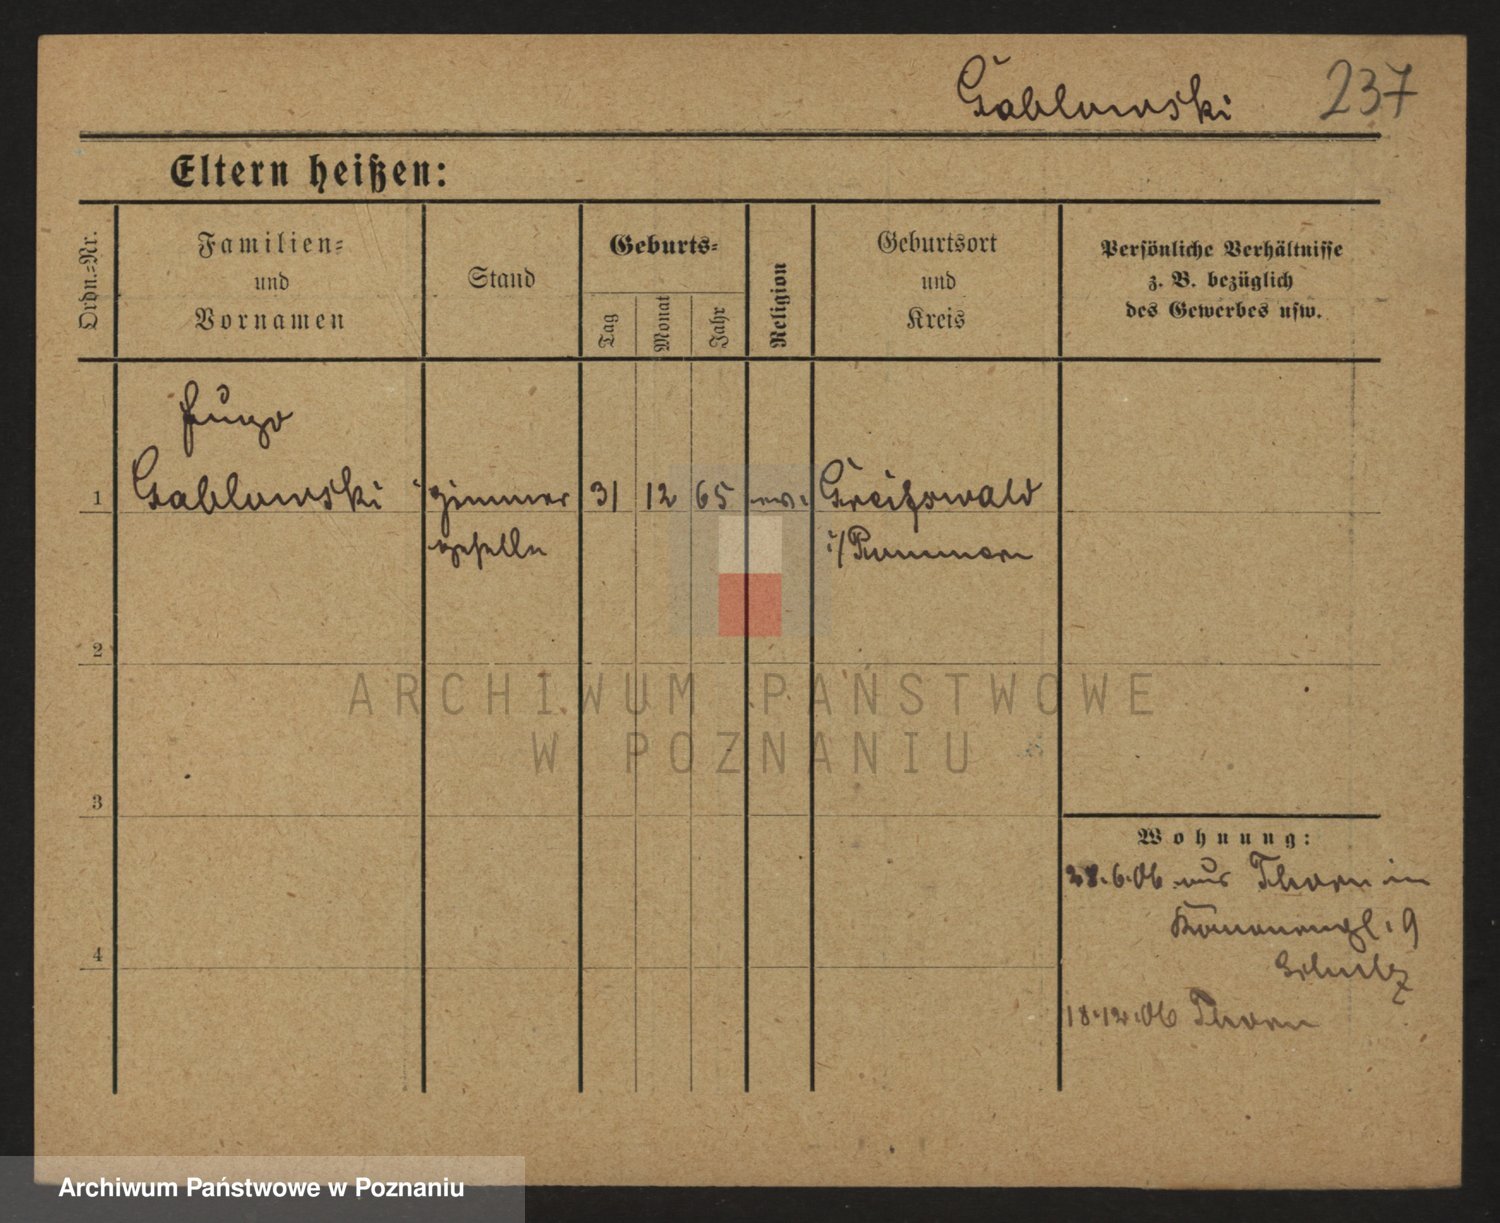 Gablowski 237
Eltern heißen:
Ordn.=Nr.
Familien=
und
Vornamen
Stand
Geburts=
Tag
Monat
Jahr
Religion
Geburtsort
und
Kreis
Persönliche Verhältnisse
z. B. bezüglich
des Gewerbes usw.
Hugo
1 Gablowski Zimmer 31 12 65 ev. Greifswald
geselle i/Pommern
2
3
4
Wohnung:
28.6.06 aus Thorn in
9
Schulz
18.12.06 Thorn
ARCHIWUM PAŃSTWOWE
W POZNANIU
Archiwum Państwowe w Poznaniu